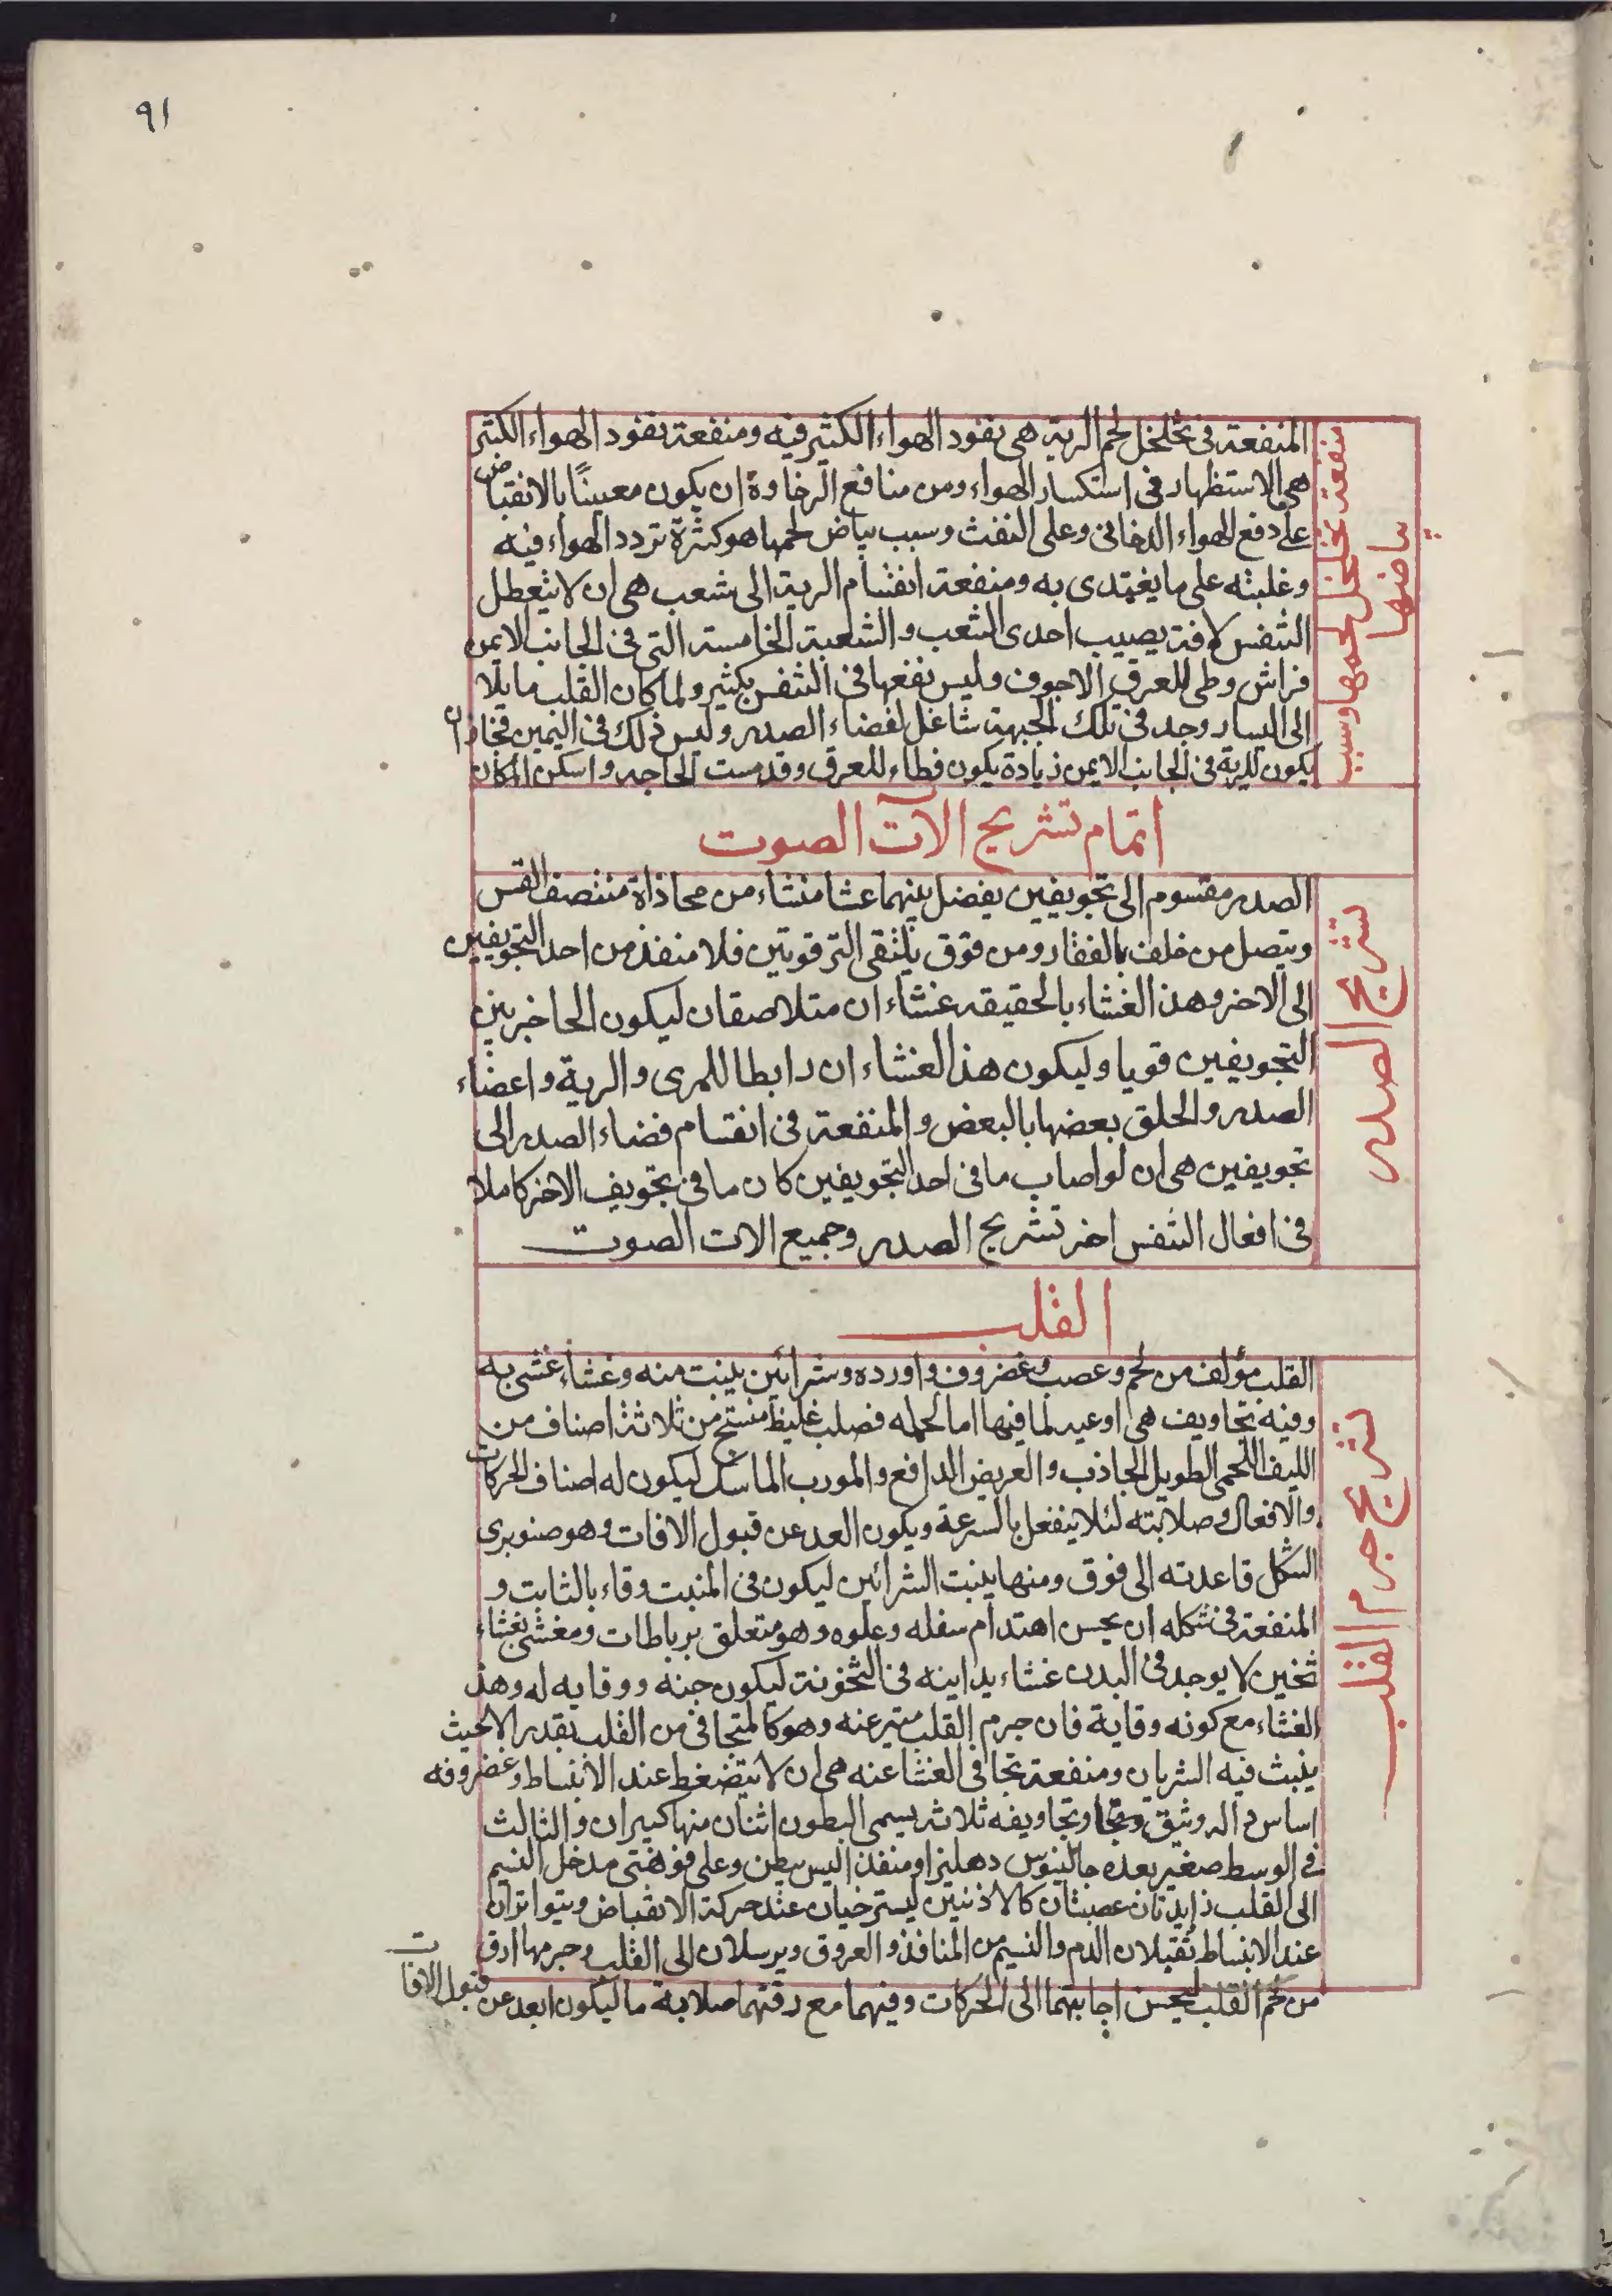 ٩١
منفعة تخلخل لحمها وسبب
بياضها
المنفعة فى تخلخل لحم الرية هى نفود الهواء الكثير فيه ومنفعة نفود الهواء الكثير
هى الاستظهار فى استكسار الهواء ومن منافع الرخاوة ان يكون معينًا بالانقباض
على دفع الهواء الدخانى وعلى النفث وسبب بياض لحمها هو كثرة تردد الهواء فيه
وغلبته على ما يغتدى به ومنفعة انقسام الرية الى شعب هى ان لا يتعطل
التنفس لافة يصيب احدى الشعب والشعبة الخامسة التى فى الجانب الايمن
فراش وطى للعرق الاجوف وليس نفعها فى التنفس بكثير ولما كان القلب مايلا
الى اليسار وجد فى تلك الجهة شاغل لفضاء الصدر وليس ذلك فى اليمين فجاز ان
يكون للرية فى الجانب الايمن زيادة يكون وطاء للعرق وقد مست الحاجه واسكن المكان
اتمام تشريح الآت الصوت
تشريح الصدر
الصدر مقسوم الى تجويفين يفصل بينهما غشا منشاء من محاذاة منتصف القس
ويتصل من خلف بالفقار ومن فوق يلتقى الترقوتين فلا منفذ من احد التجويفين
الى الاخر وهذ الغشاء بالحقيقه غشاء ان متلاصقان ليكون الحاخر بين
التجويفين قويا وليكون هذ الغشاء ان رابطا للمرى والرية واعضاء
الصدر والحلق بعضها بالبعض والمنفعة فى انقسام فضاء الصدر الى
تجويفين هى ان لو اصاب ما فى احد التجويفين كان ما فى تجويف الاخر كاملا
فى افعال التنفس اخر تشريح الصدر وجميع الات الصوت
القلب
تشريح جرم القلب
القلب مؤلف من لحم وعصب وغضروف واورده وشرائين ينبت منه وغشاء غشى به
وفيه تجاويف هى اوعيه لما فيها اما لحمه فصلب غليظ منتسج من ثلاثة اصناف من
الليف اللحمى الطويل الجاذب والعريض الدافع والمورب الماسك ليكون له اصناف الحركات
والافعال وصلابته لئلا ينفعل بالسرعة ويكون العد عن قبول الافات وهو صنوبرى
الشكل قاعدته الى فوق ومنها ينبت الشرائين ليكون فى المنبت وقاء بالثابت و
المنفعة فى شكله ان يحسن اهتدام سفله وعلوه وهو متعلق برباطات ومغشى بغشاء
ثخين لا يوجد فى البدن غشاء يداينه فى الثخونة ليكون جنه ووقايه له وهذ
الغشاء مع كونه وقاية فان جرم القلب متبرعنه وهو كالمتجافى من القلب بقدر الا بحيث
ينبث فيه الشريان ومنفعة تجافى الغشا عنه هى ان لا يتضغط عند الانبساط وغضروفه
اساس له وثيق وتجاويفه ثلاثة يسمى البطون اثنان منها كبيران والثالث
فى الوسط صغير يعده جالينوس دهليزا ومنفذا ليس ببطن وعلى فوهتى مدخل النسيم
الى القلب زايدتان عصبتان كالاذنين يسترخيان عند حركة الانقباض ويتواتران
عند الانبساط تقبلان الدم والنسيم من المنافذ والعروق ويرسلان الى القلب وجرمها ارق
من لحم القلب ليحسن اجابتهما الى الحركات وفيهما مع رقتهما صلابة ما ليكون ابعد عن قبول الافات